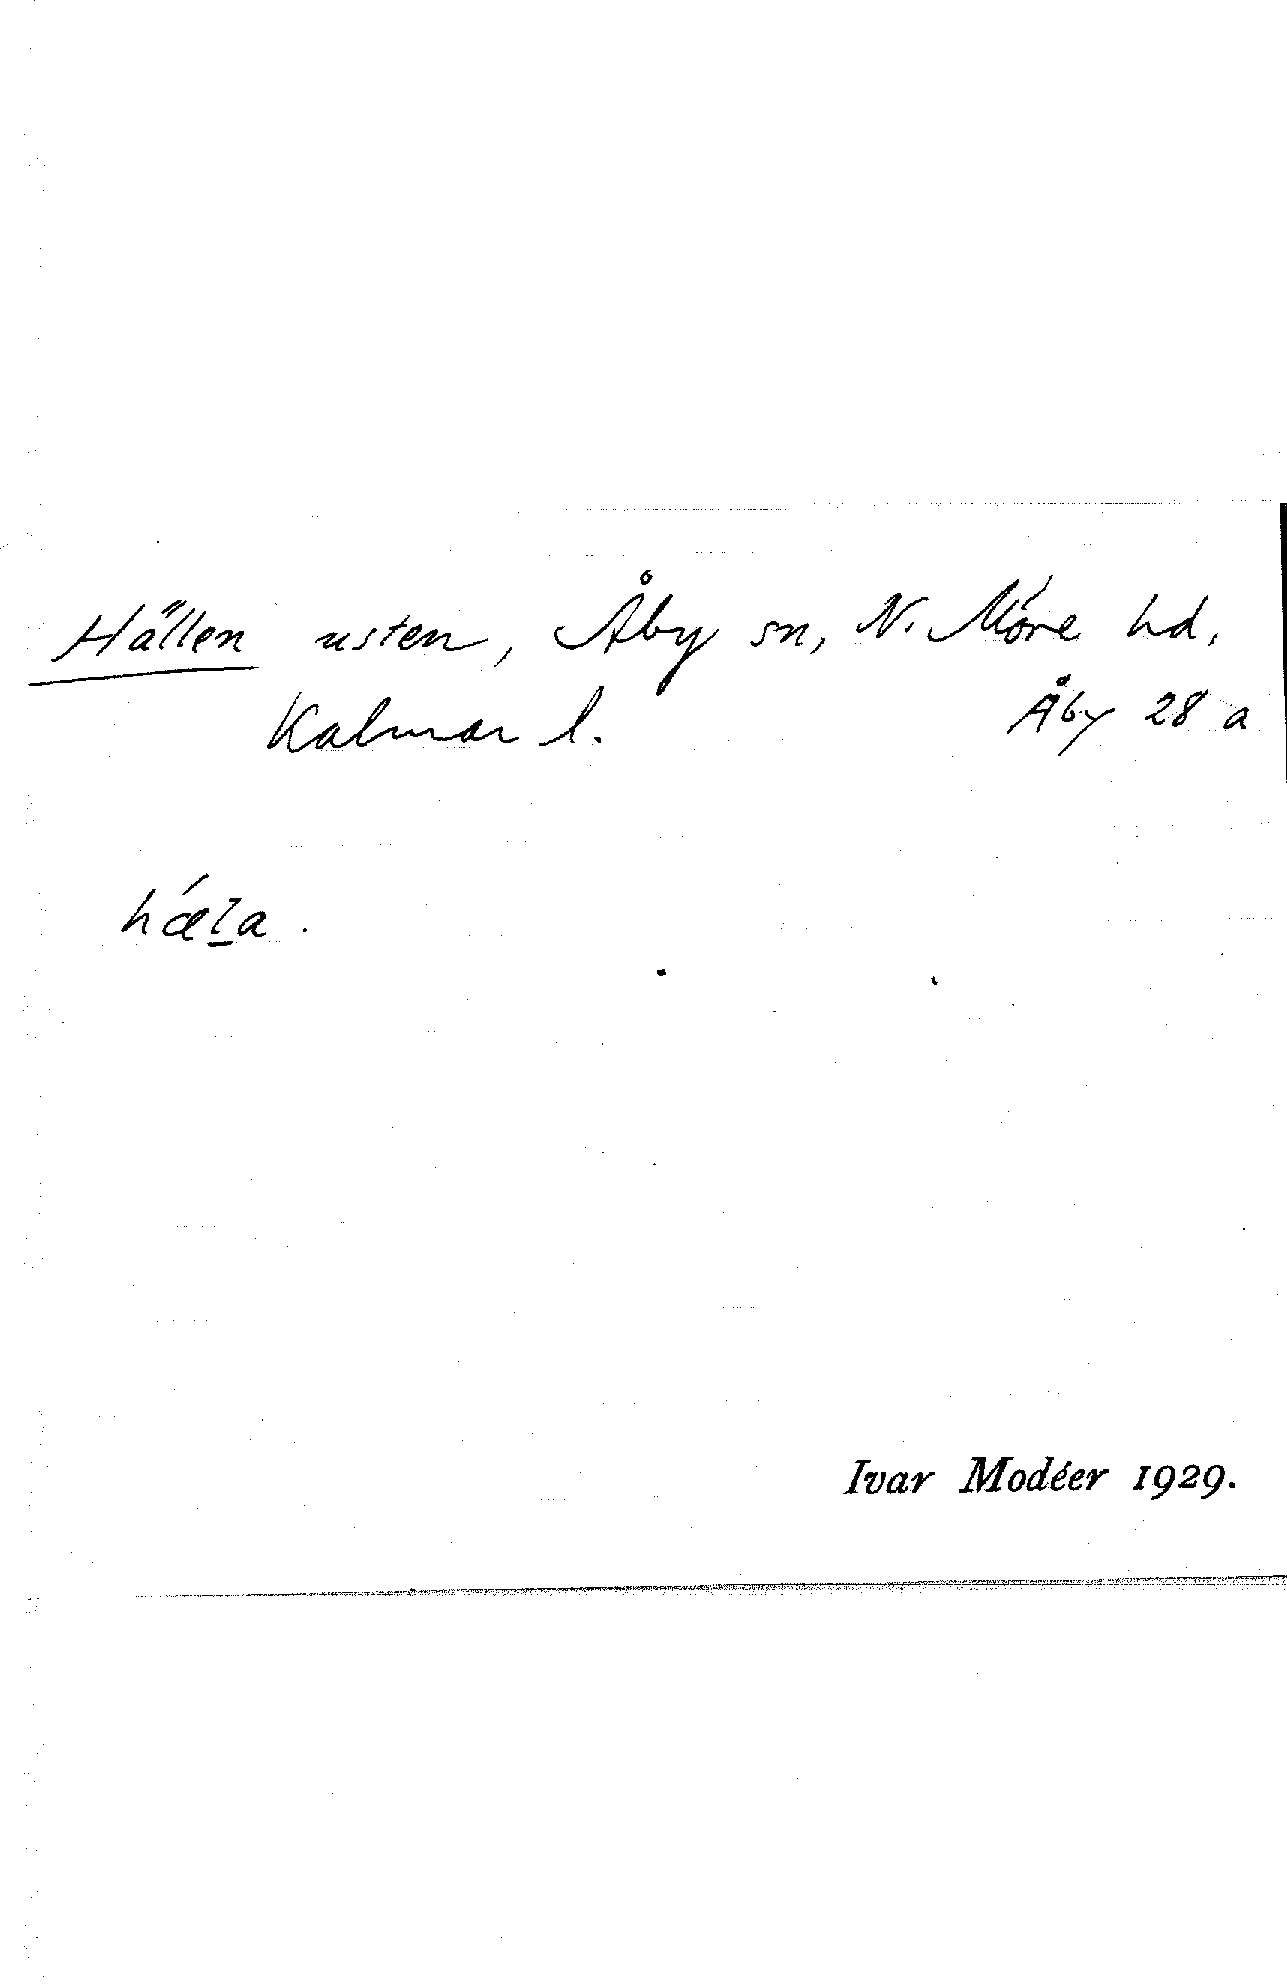 Hällen usten, Åby sn, N. Möre hd,
Kalmar l. Åby 28 a
hǽl̲a.
Ivar Modéer 1929.